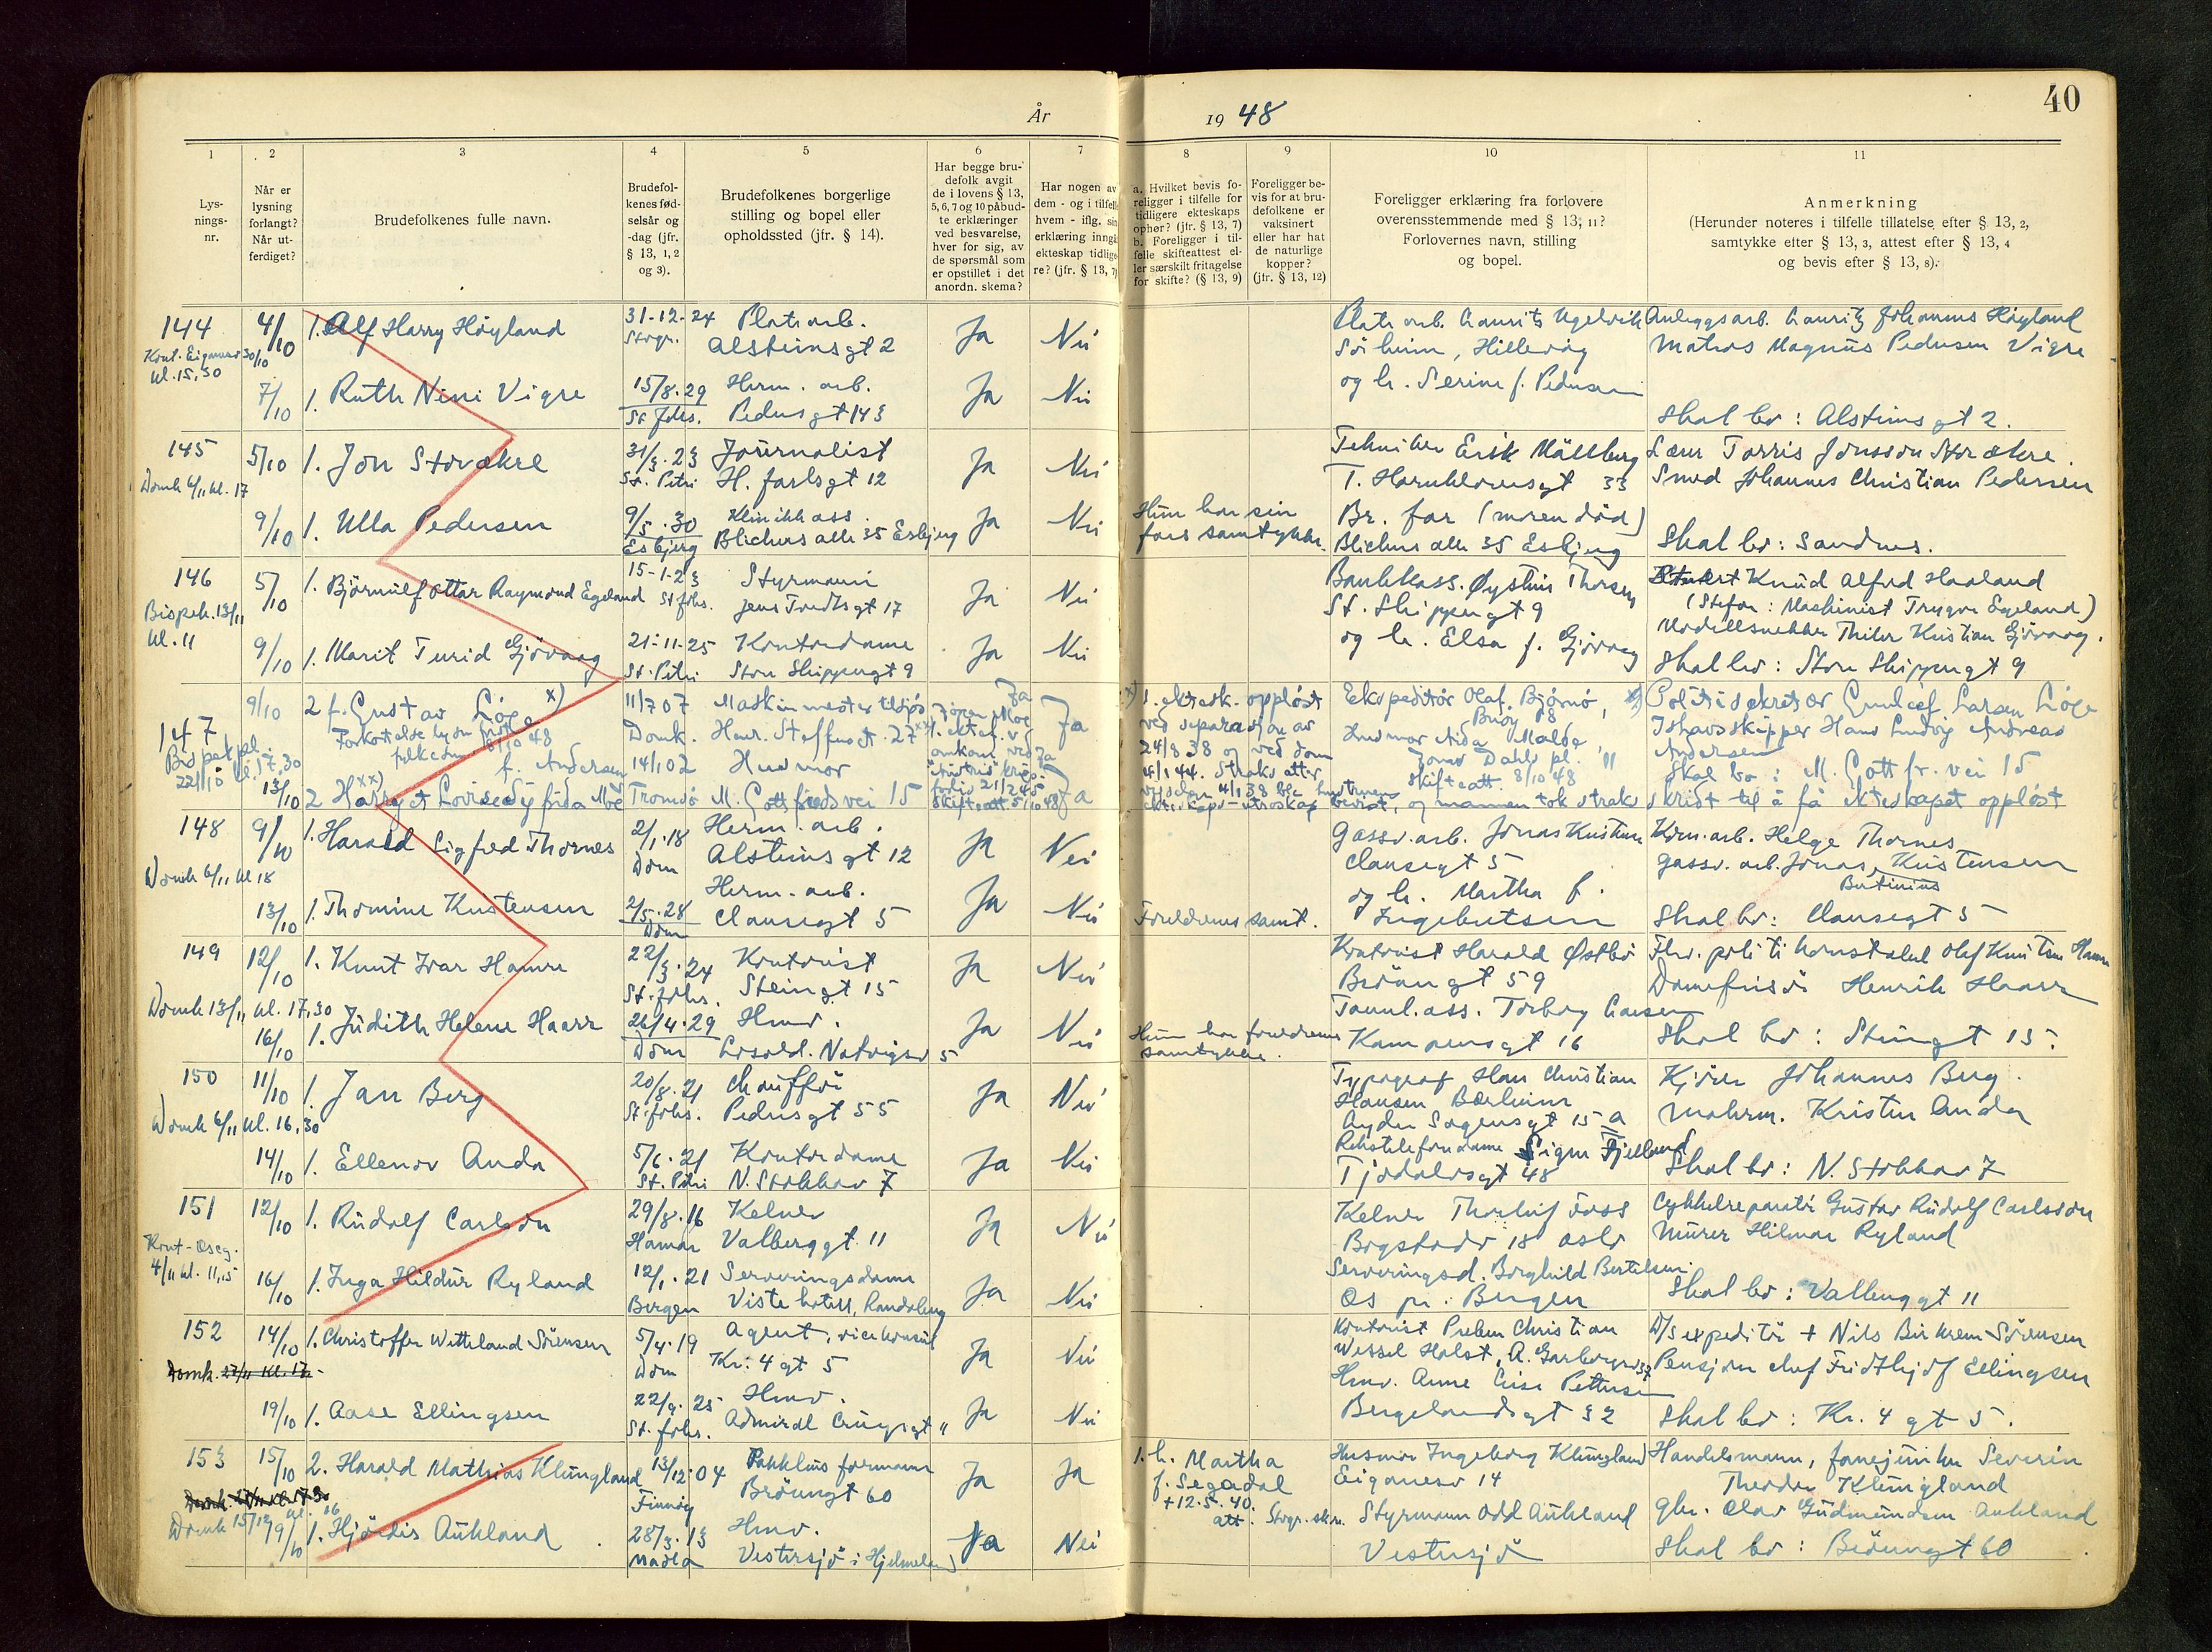 År
19 48
40
1
2
3
4
5
6
7
8
9
10
11
Lys-
nings-
nr.
Når er
lysning
forlangt?
Når ut-
ferdiget?
Brudefolkenes fulle navn.
Brudefol-
kenes fød-
selsår og
-dag (jfr.
§ 13, 1, 2
og 3).
Brudefolkenes borgerlige
stilling og bopel eller
opholdssted (jfr. § 14).
Har begge bru-
defolk avgit
de i lovens § 13,
5, 6, 7 og 10 påbud-
te erklæringer
ved besvarelse,
hver for sig, av
de spørsmål som
er opstillet i det
anordn. skema?
Har nogen av
dem - og i tilfelle
hvem - iflg. sin
erklæring inngå
ekteskap tidlige-
re? (jfr. § 13, 7)
a. Hvilket bevis fo-
religger i tilfelle for
tidligere ekteskaps
ophør? (jfr. § 13, 7)
b. Foreligger i til-
felle skifteattest el-
ler særskilt fritagelse
for skifte? (§ 13, 9)
Foreligger be-
vis for at bru-
defolkene er
vaksinert
eller har hat
de naturlige
kopper?
(jfr. § 13, 12)
Foreligger erklæring fra forlovere
overensstemmende med § 13, 11?
Forlovernes navn, stilling
og bopel.
Anmerkning
(Herunder noteres i tilfelle tillatelse efter § 13, 2,
samtykke efter § 13, 3, attest efter § 13, 4
og bevis efter § 13, 8).
144 4/10 1. Alf Harry Höyland 31-12-24 Platearb. Ja Nei
Stvgr. Alsteinsgt 2
Kont. Eiganes 30/10
kl. 15,30
Sörheim, Hillevåg
Anleggsarb. Lauritz Johannes Höyland
Matros Magnus Pedersen Vigre
7/10 1. Ruth Nini Vigre 15/8.29 Herm. arb. Ja Nei
St. Johs. Pedersgt 143
og h. Serine f. Pedersen
Skal bo: Alsteinsgt 2.
145 5/10 1. Jon Storækre 31/3.23 Journalist Ja Nei
St. Petri H. Jarlsgt 12
Domk 6/11 kl. 17
Tekniker Erik Mällberg
T. Hornkloversgt 33
Lærer Torris Jonsson Storækre.
Smed Johannes Christian Pedersen
9/10 1. Ulla Pedersen 9/5.30 Klinikkass. Ja Nei
Esbjerg Blichers alle 35 Esbjerg
Hun har sin
fars samtykke.
Br. far (moren död)
Blichers alle 35 Esbjerg
Skal bo: Sandnes.
146 5/10 1. Björnulf Ottar Raymond Egeland 15-1-23 Styrmann Ja Nei
St. Johs. Jens Tvedtsgt 17
Bispek. 13/11
kl. 11
Bankkass. Øystein Thorsen
St. Skippergt 9
Knud Alfred Haaland
(Stefar: Maskinist Trygve Egeland)
9/10 1. Marit Turid Gjövaag 21-11-25 Kontordame Ja Nei
St. Petri Store Skippergt 9
og h. Elsa f. Gjövaag
Modellsnekker Thiler Kristian Gjövaag.
Skal bo: Store Skippergt 9
147 9/10 2 f. Gustav Löge x) 11/7 07 Maskinmester tilsjös Ja Ja
Domk. Henr. Steffensgt. 27
Forkortelse lysn
8/10 48
Bispekapel
22/10 kl. 17,30
x) 1. ektesk. oppløst
ved separasjon av
24/8 38 og ved dom
4/1 44. Straks etter
Ekspeditör Olaf Bjørnø,
Husmor Aida Malde,
Jonas Dahls pl. 11
Skifteatt. 8/10 48
x) Politisekretær Gunleif Larsen Löge
Ishavsskipper Hans Ludvig Andreas
Andersen
13/10 2 Harryet Lovise Syfrida Moe f. Andersen xx) 14/1 02 Husmor Ja
Tromsö M. Gottfredsvei 15
skifteatt. 5/10 48
Skal bo: M. Gottfr. vei 15
og mannen tok straks skridt til å få ekteskapet oppløst
148 9/10 1. Harald Sigfred Thornes 2/1.18 Herm. arb. Ja Nei
Dom Alsteinsgt 12
Domk 6/11 kl 18
Gassv. arb. Jonas Kristensen
Clausegt 5
Korn. arb. Helge Thornes
Gassv. arb. Jonas Kristensen
Bertinius
13/10 1. Thomine Kristensen 2/5.28 Herm. arb. Ja Nei
Dom Clausegt 5
Foreldrenes samt.
og h. Martha f.
Ingebretsen
Skal bo: Clausegt 5
149 12/10 1. Knut Ivar Hamre 22/3.24 Kontorist Ja Nei
St. Johs. Steingt 15
Domk 13/11 kl. 17,30
Kontorist Harald Østbö
Bröungt 59
Fhv. politikonstabel Olaf Knutsen Hamre
Damefrisör Henrik Haarr
16/10 1. Judith Helene Haarr 26/4.29 Hmv. Ja Nei
Dom Lrsold. Natvigsv 5
Hun har foreldrenes
samtykke.
Tannl. ass. Torborg Larsen
Kampensgt 16
Skal bo: Steingt 15.
150 11/10 1. Jan Berg 20/8.21 Chaufför Ja Nei
St. Johs. Pedersgt 55
Domk 6/11 kl. 16,30
Typograf Hans Christian
Hansen Bærheim
Ayden Sagensgt 15 a
Kjörer Johannes Berg.
Molerm. Kristen Anda
14/10 1. Ellenor Anda 5/6.21 Kontordame Ja Nei
St. Petri N. Stokkav 7
Rikstelefondame Signe Fjelland
Tjodolvsgt 48
Skal bo: N. Stokkav 7
151 12/10 1. Rudolf Carlson 29/8.16 Kelner Ja Nei
Hamar Valberggt 11
Kont-Oseg.
4/11 kl. 11,15
Kelner Thorleif Foss
Bogstadv 18 Oslo
Cykkelreparatör Gustav Rudolf Carlsson
Murer Hilmar Ryland
16/10 1. Inga Hildur Ryland 12/1.21 Serveringsdame Ja Nei
Bergen Viste hotell, Randaberg
Serveringsd. Borghild Bertelsen.
Os pr. Bergen
Skal bo: Valberggt 11
152 14/10 1. Christoffer Wetteland Sörensen 5/4.19 Agent, visekonsul Ja Nei
Dom Kr. 4 gt 5
Domk. 27/11 kl. 17
Kontorist Preben Christian
Wessel Holst, A. Garborgsv 37
D/S expeditör + Nils Birkrem Sörensen
Pensjon chef Fridthjof Ellingsen
19/10 1. Aase Ellingsen 22/9.25 Hmv. Ja Nei
St. Johs. Admiral Cruysgt 11
Hmv. Anne Lise Pettersen
Bergelandsgt 32
Skal bo: Kr. 4 gt 5.
153 15/10 2. Harald Mathias Klungland 13/12.04 Pakkhusformann Ja Ja
Finnöy Bröungt 60
Domk 15/12 kl. 16
1. h. Martha
f. Segadal
+ 12.5.40.
att. Stvgr. skr.
Husmor Ingeborg Klungland
Eiganesv 14
Handelsmann, fanejunker Severin
Theodor Klungland
19/10 1. Hjördis Aukland 28/3.13 Hmv. Ja Nei
Madla Vestersjö i Hjelmeland
Styrmann Odd Aukland
Vestersjö
gbr. Olav Gudmundsen Aukland
Skal bo: Bröungt 60